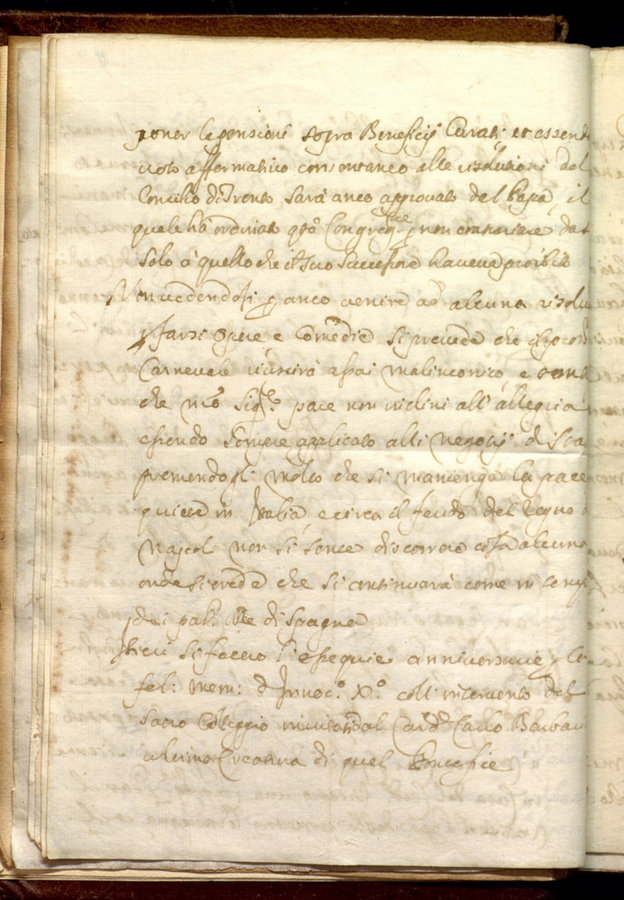 poner le pensioni sopra Beneficij Curati et essend
voto affermativo consentaneo alle risolutioni del
Concilio di Trento sarà anco approvato dal Papa, il
quale hà ordinato qta Congregne p non contravenire da
solo à quello che il suo havevа proibito
Non vedendosi p anco venire ad alcuna risolu
p farsi Opere e Comedie si prevede che il
Carnevale riuscirà assai malinconico e
che Nro Sigre pare non inclini all'allegria
essendo sempre applicato alli negotij di
premendogli molto che si mantenga la pace
quiete in Italia, e circa il feudo del Regno
Napoli non si sente discorrere cosa alcuna
onde si crede che si continuarà come in
di Spagna
Hieri si fecero l'esequie anniversarie p la
fel: mem: d Innoco Xo coll'intervento del
Sacro Collegio invitato dal Cardl Carlo Barbar
ultima Creatura di quel Pontefice